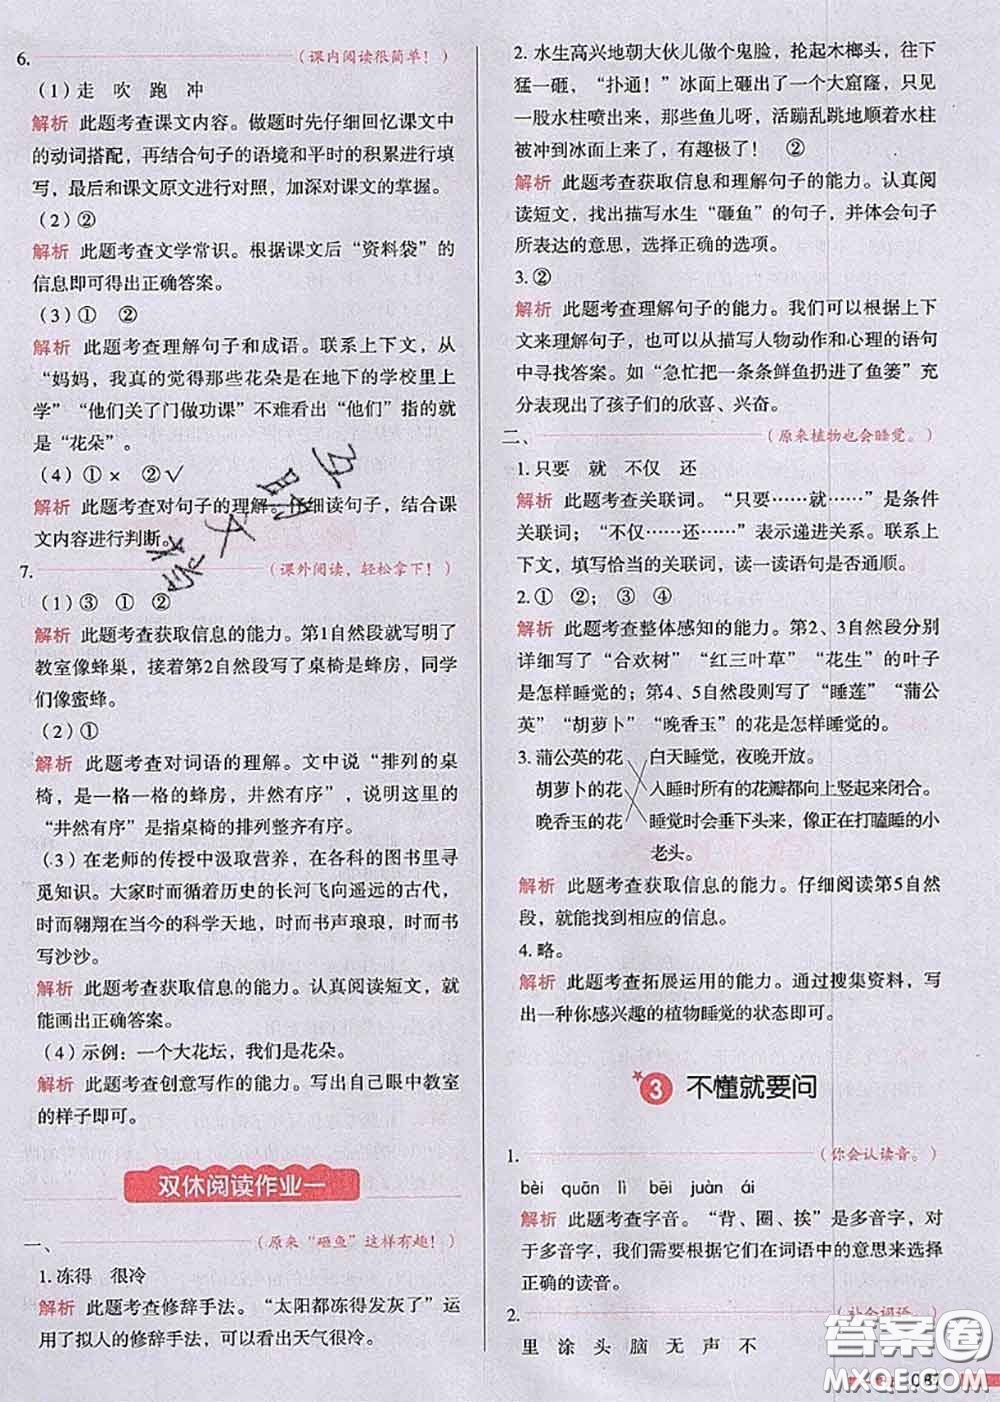 6. （课内阅读很简单！）
（1）走 吹 跑 冲
解析 此题考查课文内容。做题时先仔细回忆课文中
的动词搭配，再结合句子的语境和平时的积累进行填
写，最后和课文原文进行对照，加深对课文的掌握。
（2）②
解析 此题考查文学常识。根据课文后“资料袋”的
信息即可得出正确答案。
（3）① ②
解析 此题考查理解句子和成语。联系上下文，从
“妈妈，我真的觉得那些花朵是在地下的学校里上
学”“他们关了门做功课”不难看出“他们”指的就
是“花朵”。
（4）①× ②√
解析 此题考查对句子的理解。仔细读句子，结合课
文内容进行判断。
7. （课外阅读，轻松拿下！）
（1）③ ① ②
解析 此题考查获取信息的能力。第1自然段就写明了
教室像蜂巢，接着第2自然段写了桌椅是蜂房，同学
们像蜜蜂。
（2）①
解析 此题考查对词语的理解。文中说“排列的桌
椅，是一格一格的蜂房，井然有序”，说明这里的
“井然有序”是指桌椅的排列整齐有序。
（3）在老师的传授中汲取营养，在各科的图书里寻
觅知识。大家时而循着历史的长河飞向遥远的古代，
时而翱翔在当今的科学天地，时而书声琅琅，时而书
写沙沙。
解析 此题考查获取信息的能力。认真阅读短文，就
能画出正确答案。
（4）示例：一个大花坛，我们是花朵。
解析 此题考查创意写作的能力。写出自己眼中教室
的样子即可。
双休阅读作业一
一、 （原来“砸鱼”这样有趣！）
1.冻得 很冷
解析 此题考查修辞手法。“太阳都冻得发灰了”运
用了拟人的修辞手法，可以看出天气很冷。
2. 水生高兴地朝大伙儿做个鬼脸，抡起木榔头，往下
猛一砸，“扑通！”冰面上砸出了一个大窟窿，只见
一股水柱喷出来，那些鱼儿呀，活蹦乱跳地随着水柱
被冲到冰面上来，有趣极了！ ②
解析 此题考查获取信息和理解句子的能力。认真阅
读短文，找出描写水生“砸鱼”的句子，并理解句子
所表达的意思，选择正确的选项。
3. ②
解析 此题考查理解句子的能力。我们可以根据上下
文来理解句子，尤其可以从描写人物动作和心理的语句
中寻找答案。如“急忙把一条条鲜鱼扔进了鱼篓”充
分表现出了孩子们的欣喜、兴奋。
二、 （原来植物也会睡觉。）
1. 只要 就 不仅 还
解析 此题考查关联词。“只要……就……”是条件
关联词；“不仅……还……”表示递进关系。联系上
下文，填写恰当的关联词，读一读语句是否通顺。
2. ① ②； ③ ④
解析 此题考查整体感知的能力。第2、3自然段分别
详细写了“合欢树”“红三叶草”“花生”的叶子
是怎样睡觉的；第4、5自然段则写了“睡莲”“蒲公
英”“胡萝卜”“晚香玉”的花是怎样睡觉的。
3. 蒲公英的花 白天睡觉，夜晚开放。
胡萝卜的花 入睡时所有的花瓣都向上竖起来闭合。
晚香玉的花 睡觉时会垂下头来，像正在打瞌睡的小
老头。
解析 此题考查获取信息的能力。仔细阅读第5自然
段，就能找到相应的信息。
4. 略。
解析 此题考查拓展运用的能力。通过搜集资料，写
出一种你感兴趣的植物睡觉的状态即可。
3 不懂就要问
1. （你会认读音。）
bèi quān lì bēi juàn ái
解析 此题考查字音。“背、圈、挨”是多音字，对
于多音字，我们需要根据它们在词语中的意思来选择
正确的读音。
2. （补全词语。）
里 涂 头 脑 无 声 不
答案圈
MXQE.COM